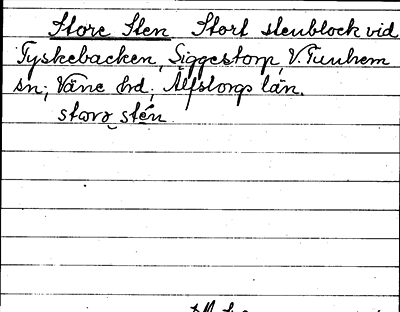 Store Sten Stort stenblock vid
Tyskebacken, Siggestorp, V. Tunhem
sn; Väne hrd. Älfsborgs län.
storə stén.